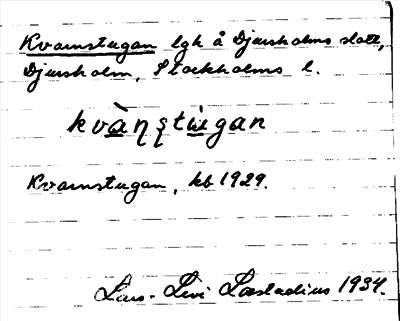 Kvarnstugan lgh å Djursholms slott,
Djursholm, Stockholms l.
kvàn̩ștùgan
Kvarnstugan, kb 1929.
Lars-Levi Læstadius 1934.